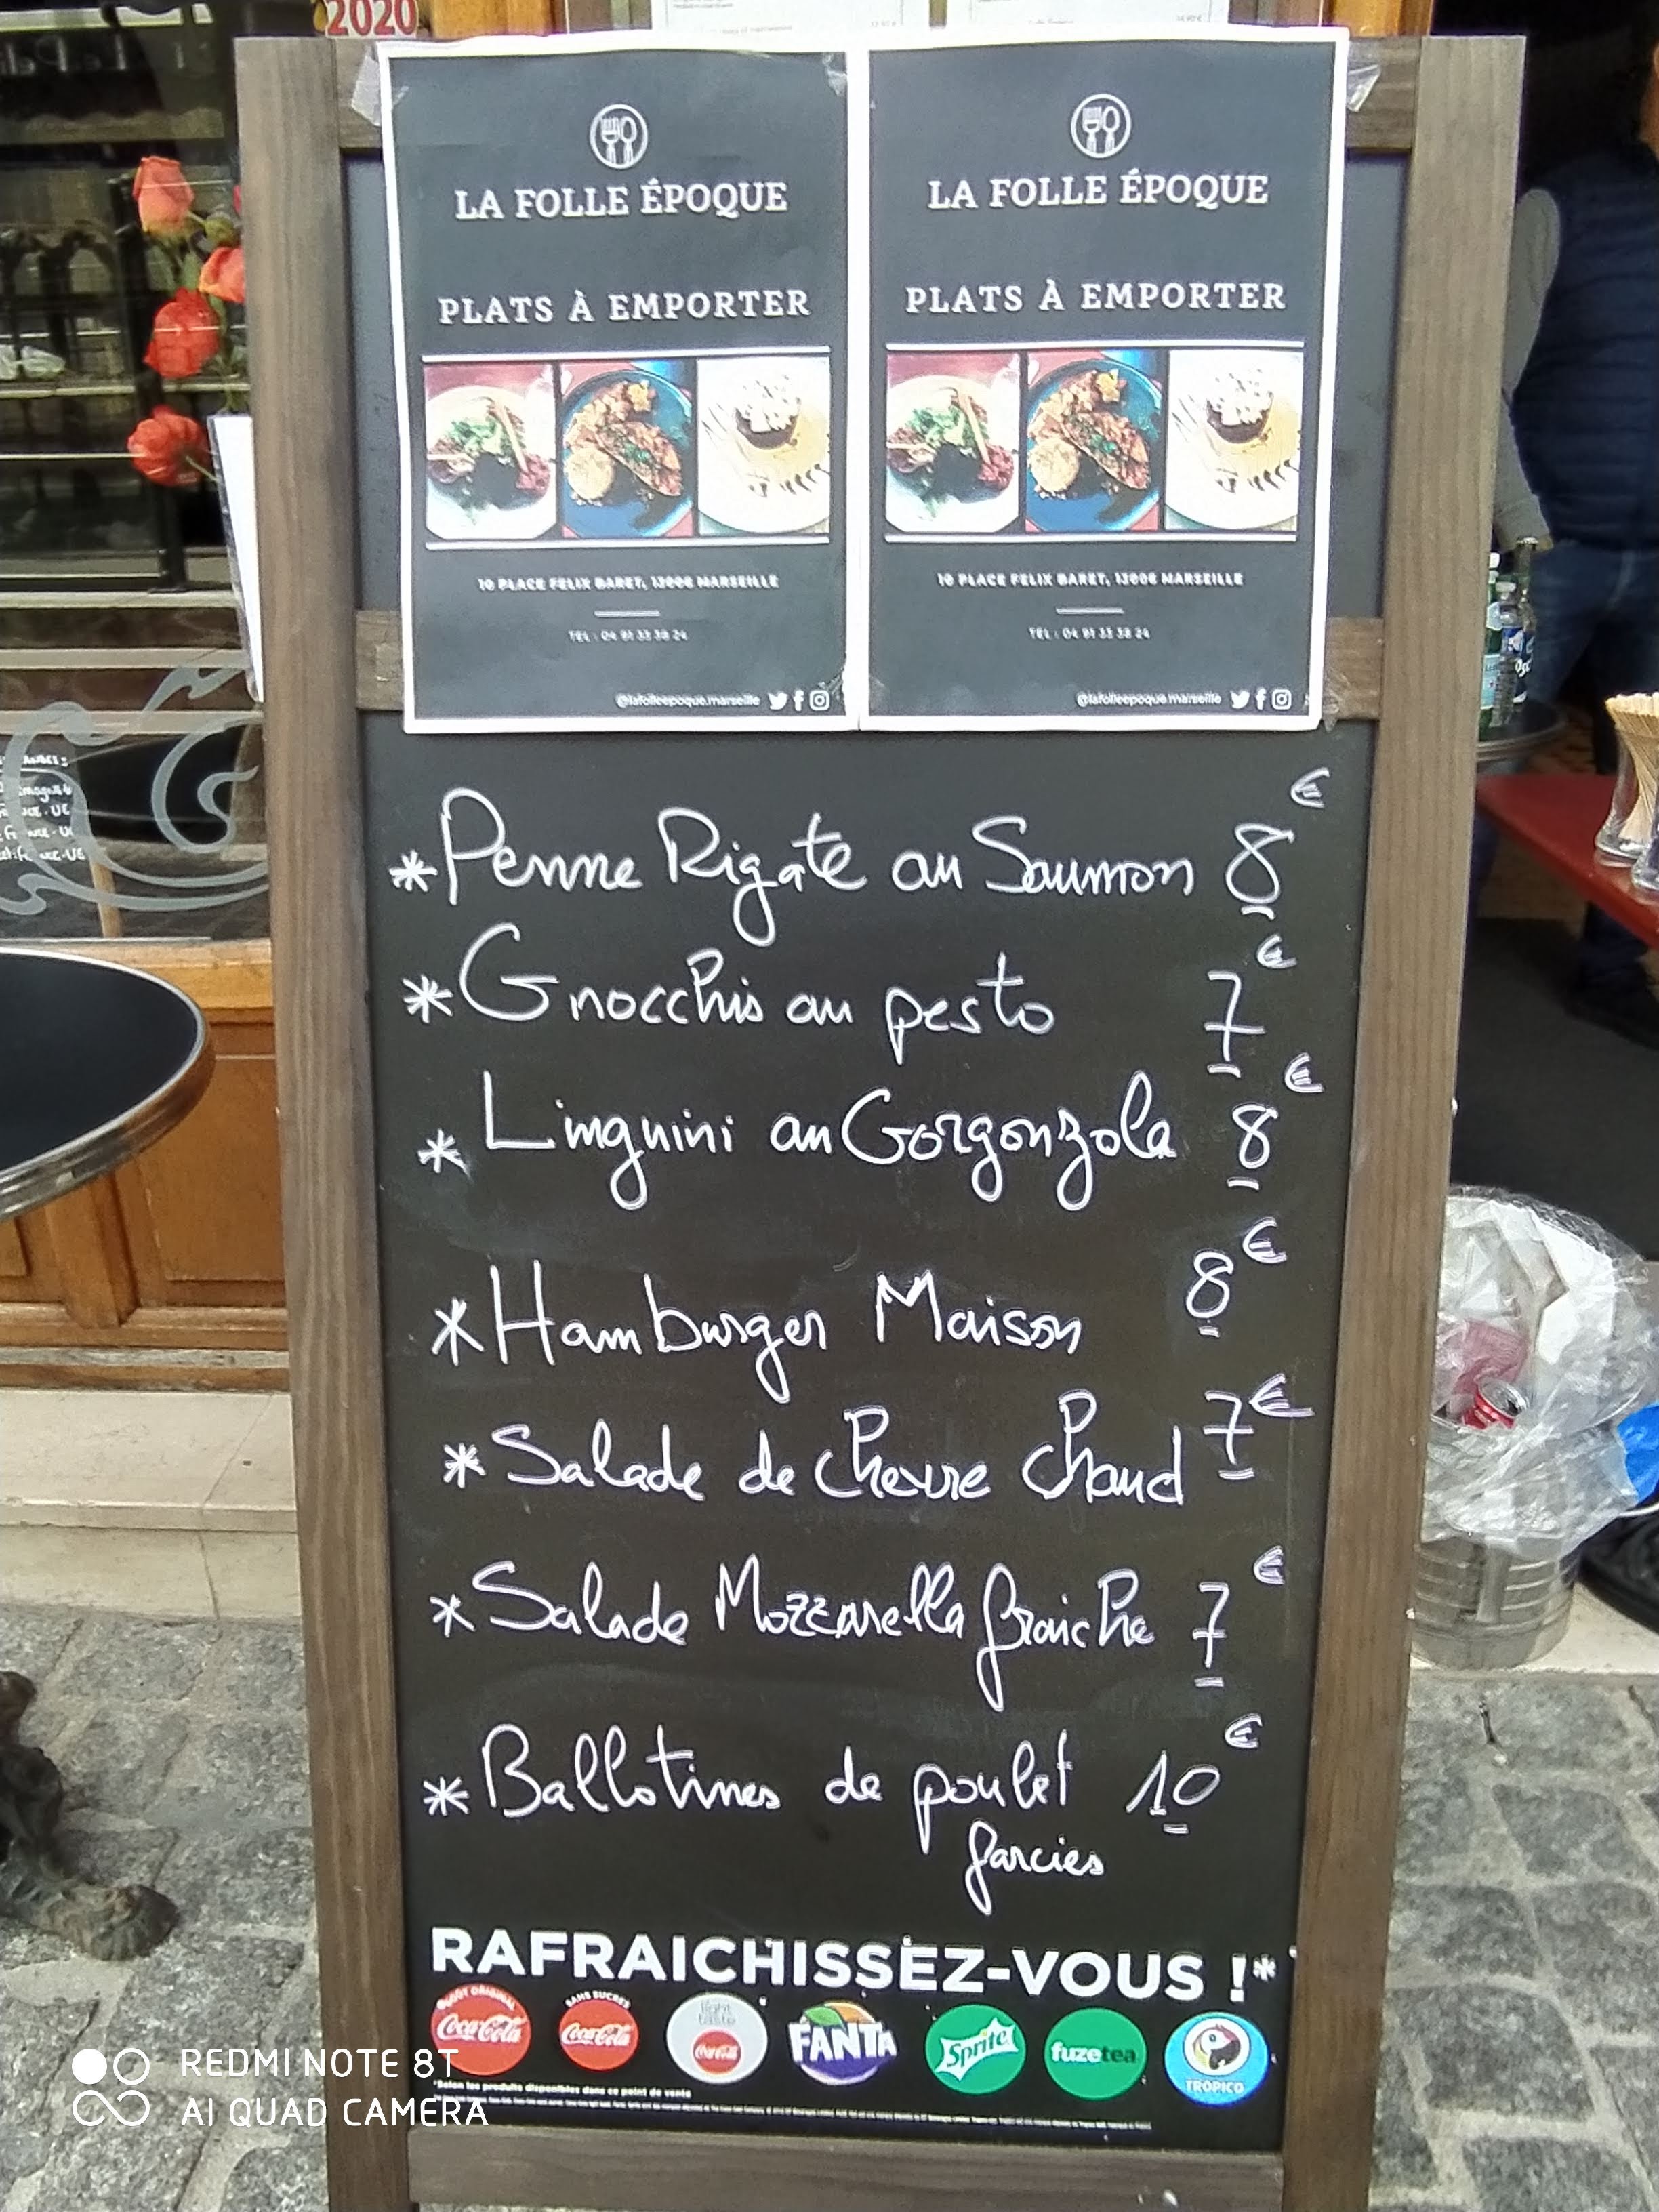 2020
LA FOLLE ÉPOQUE
PLATS À EMPORTER
10 PLACE FELIX BARET, 13006 MARSEILLE
TEL : 04 91 33 38 24
@lafolleepoque.marseille
LA FOLLE ÉPOQUE
PLATS À EMPORTER
10 PLACE FELIX BARET, 13006 MARSEILLE
TEL : 04 91 33 38 24
@lafolleepoque.marseille
* Penne Rigate au Saumon 8€
* Gnocchis au pesto 7€
* Linguini au Gorgonzola 8€
* Hamburger Maison 8€
* Salade de chevre chaud 7€
* Salade Mozzarella fraiche 7€
* Ballotines de poulet 10€
farcies
RAFRAICHISSEZ-VOUS !*
GOÛT ORIGINAL
Coca-Cola
SANS SUCRES
Coca-Cola
light taste
Coca-Cola
FANTA
Sprite
fuzetea
TROPICO
*Selon les produits disponibles dans ce point de vente
REDMI NOTE 8T
AI QUAD CAMERA